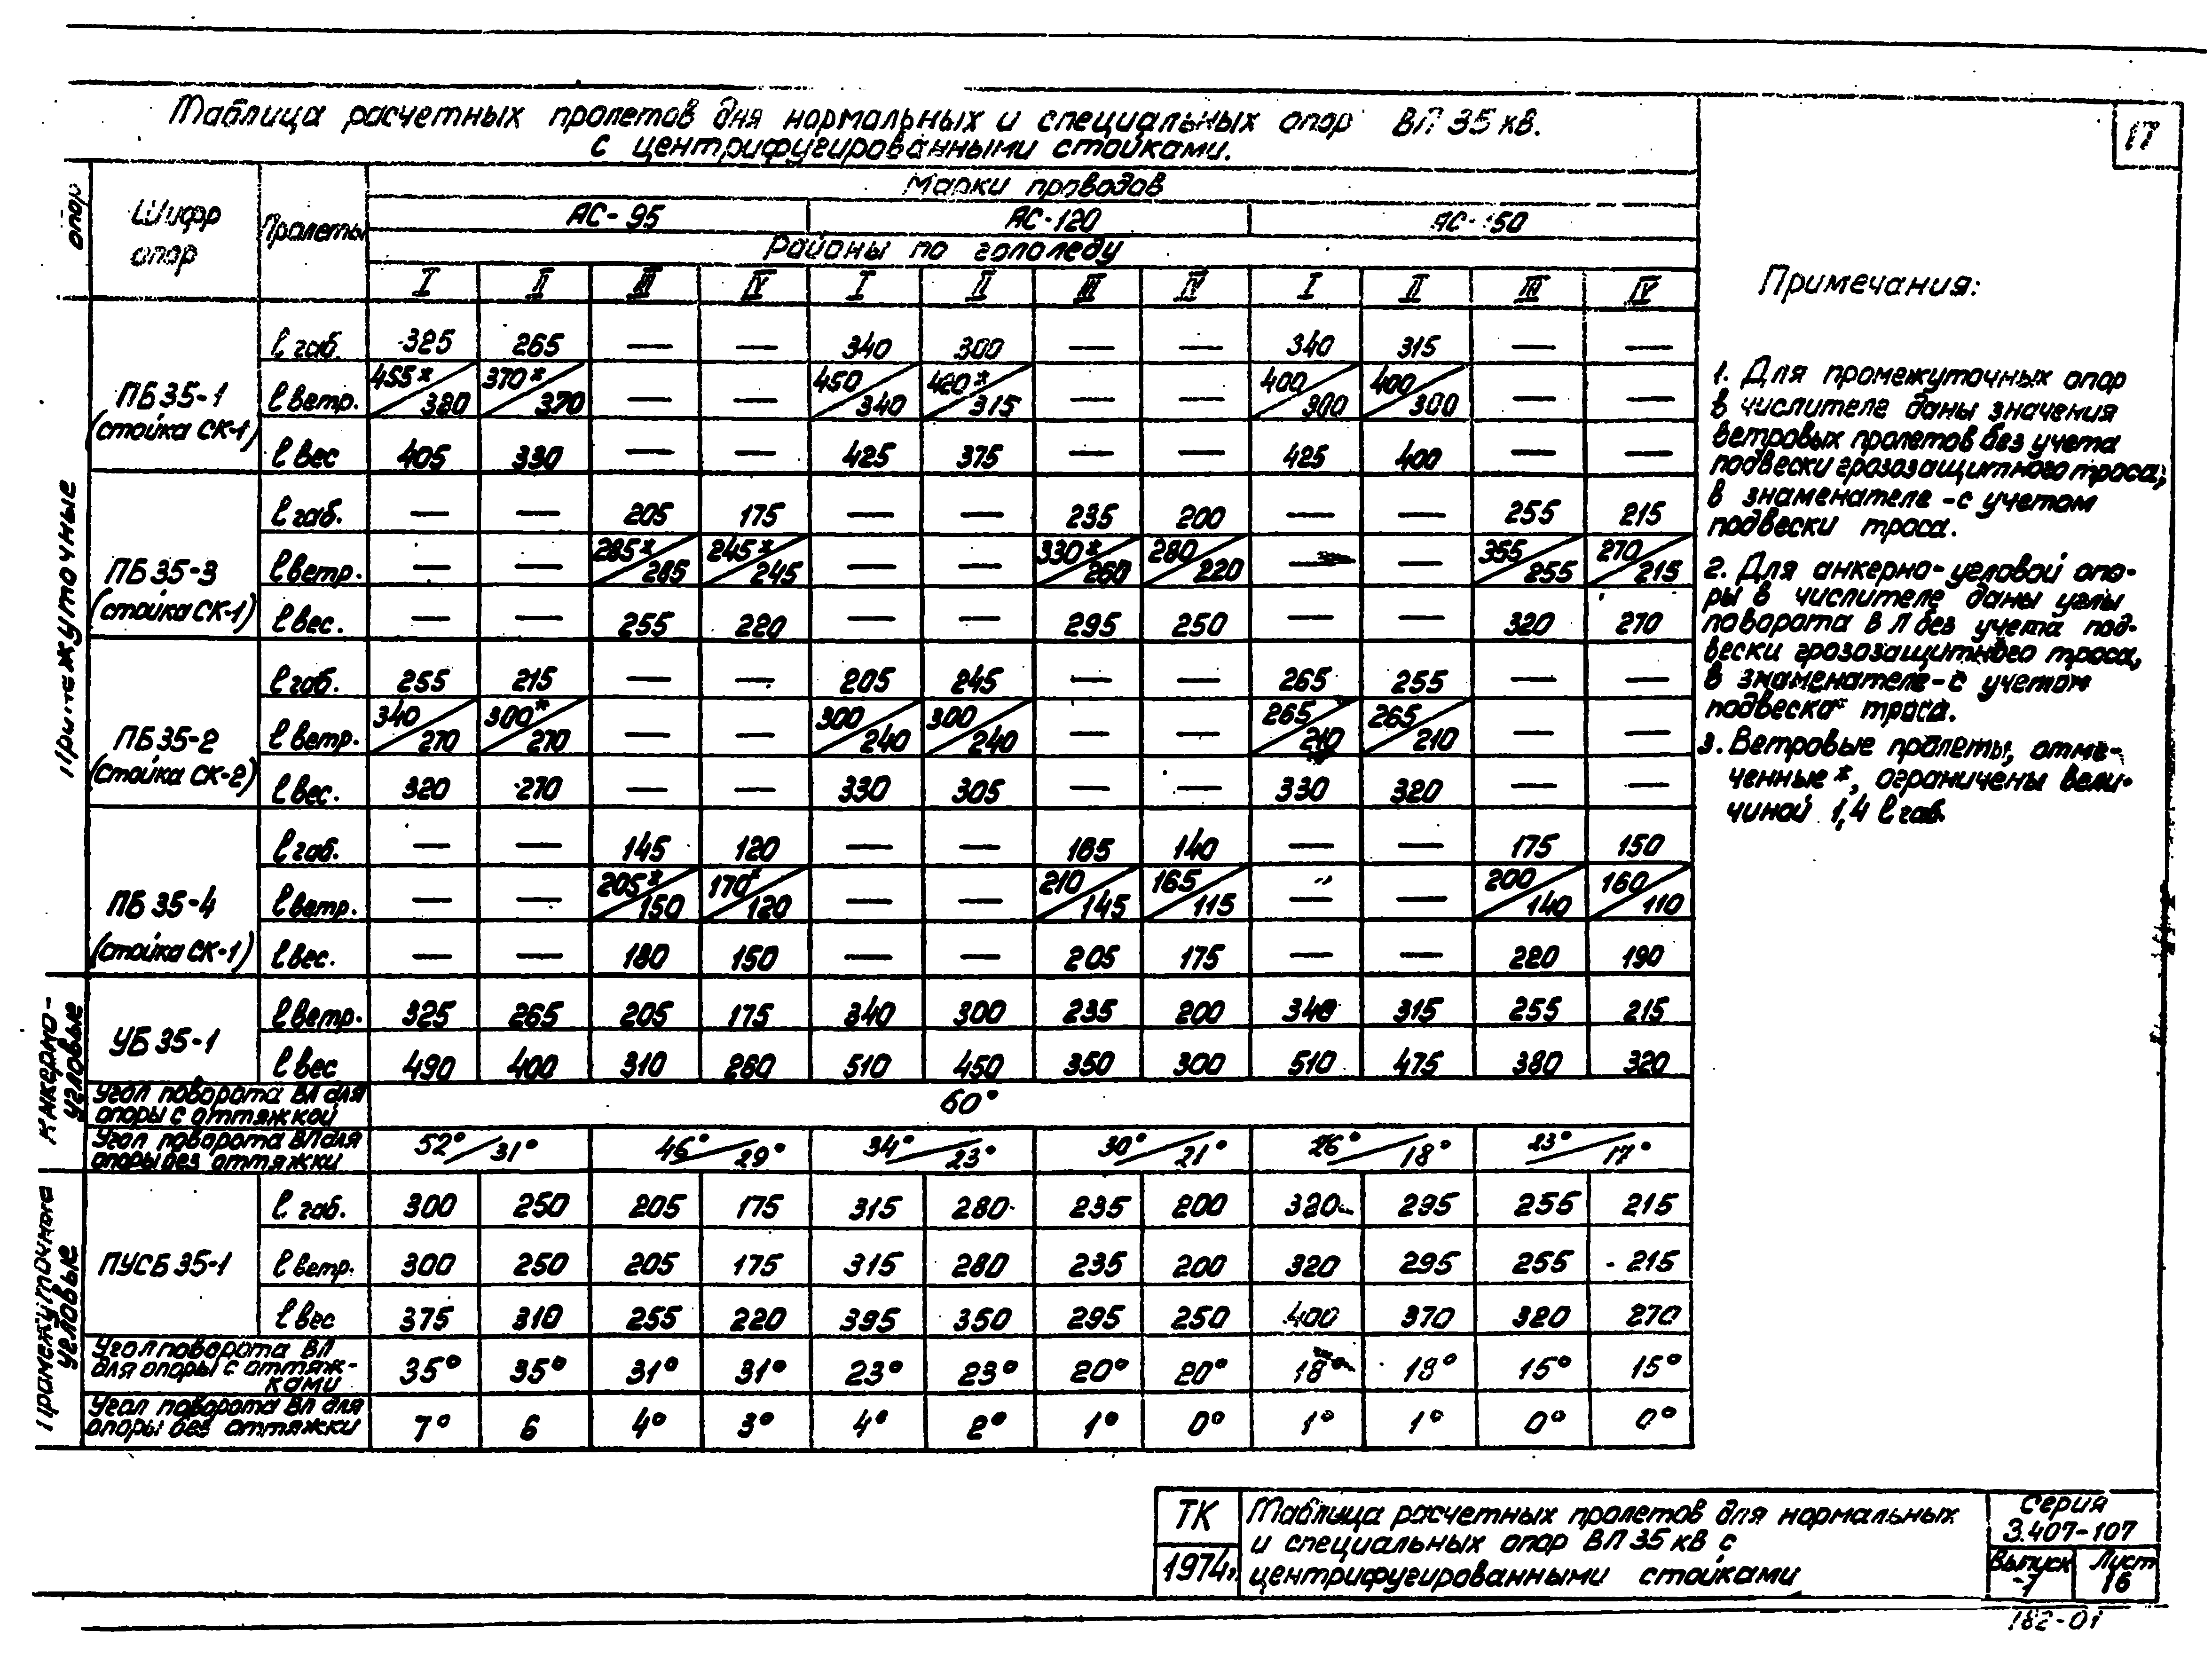 Таблица расчетных пролетов для нормальных и специальных опор ВЛ 35 кв.
с центрифугированными стойками.
17
опор
Шифр опор
Пролеты
Марки проводов
АС-95 АС-120 АС-150
Районы по гололеду
I II III IV I II III IV I II III IV
Промежуточные
ПБ35-1
(стойка СК-1)
l габ. 325 265 — — 340 300 — — 340 315 — —
l ветр. 455*/380 370*/370 — — 450/340 420*/315 — — 400/300 400/300 — —
l вес 405 330 — — 425 375 — — 425 400 — —
ПБ35-3
(стойка СК-1)
l габ. — — 205 175 — — 235 200 — — 255 215
l ветр. — — 285*/285 245*/245 — — 330*/260 280/220 — — 355/255 270/215
l вес. — — 255 220 — — 295 250 — — 320 270
ПБ35-2
(стойка СК-2)
l габ. 255 215 — — 205 245 — — 265 255 — —
l ветр. 340/270 300*/270 — — 300/240 300/240 — — 265/210 265/210 — —
l вес. 320 270 — — 330 305 — — 330 320 — —
ПБ35-4
(стойка СК-1)
l габ. — — 145 120 — — 165 140 — — 175 150
l ветр. — — 205*/150 170*/120 — — 210/145 165/115 — — 200/140 160/110
l вес. — — 180 150 — — 205 175 — — 220 190
Анкерно-
угловые
УБ35-1
l ветр. 325 265 205 175 340 300 235 200 340 315 255 215
l вес 490 400 310 260 510 450 350 300 510 475 380 320
Угол поворота ВЛ для
опоры с оттяжкой
60°
Угол поворота ВЛ для
опоры без оттяжки
52°/31° 46°/29° 34°/23° 30°/21° 26°/18° 23°/17°
Промежуточные
угловые
ПУСБ35-1
l габ. 300 250 205 175 315 280 235 200 320 295 255 215
l ветр. 300 250 205 175 315 280 235 200 320 295 255 215
l вес 375 310 255 220 395 350 295 250 400 370 320 270
Угол поворота ВЛ
для опоры с оттяж-
ками
35° 35° 31° 31° 23° 23° 20° 20° 18° 18° 15° 15°
Угол поворота ВЛ для
опоры без оттяжки
7° 6 4° 3° 4° 2° 1° 0° 1° 1° 0° 0°
Примечания:
1. Для промежуточных опор
в числителе даны значения
ветровых пролетов без учета
подвески грозозащитного троса;
в знаменателе - с учетом
подвески троса.
2. Для анкерно-угловой опо-
ры в числителе даны углы
поворота ВЛ без учета под-
вески грозозащитного троса,
в знаменателе - с учетом
подвеска троса.
3. Ветровые пролеты, отме-
ченные *, ограничены вели-
чиной 1,4 l габ.
ТК
1974г.
Таблица расчетных пролетов для нормальных
и специальных опор ВЛ 35 кв с
центрифугированными стойками
Серия
3.407-107
Выпуск
-1
Лист
16
182-01